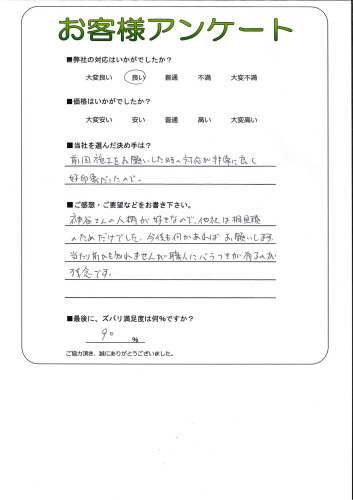 お客様アンケート
■弊社の対応はいかがでしたか?
大変良い 良い 普通 不満 大変不満
■価格はいかがでしたか?
大変安い 安い 普通 高い 大変高い
■当社を選んだ決め手は?
前回施工をお願いした時の対応が非常に良く
好印象だったので。
■ご感想・ご要望などをお書き下さい。
神谷さんの人柄が好きなので、他社は相見積
のためだけでした。今後も何かあればお願いします。
当たり前かも知れませんが職人にバラつきが有るのが
残念です。
■最後に、ズバリ満足度は何%ですか?
90 %
ご協力頂き、誠にありがとうございました。